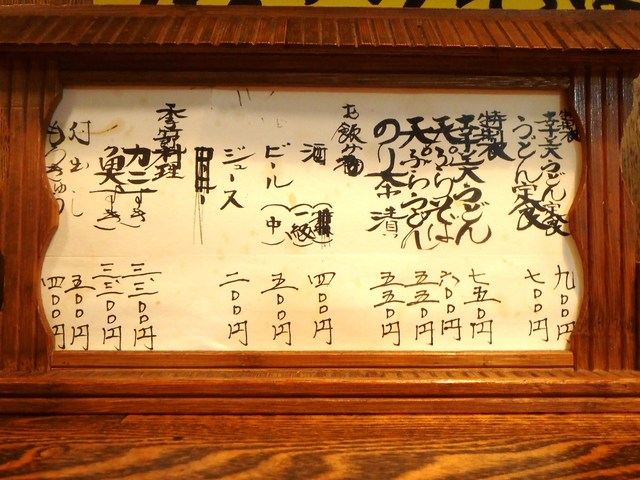 特製
幸美うどん定食 九〇〇円
うどん定食 七〇〇円
特製
幸美うどん 七五〇円
天ぷらそば 六〇〇円
天ぷらうどん 五五〇円
のり茶漬 五五〇円
お飲み物
酒 二級 四〇〇円
ビール(中) 五〇〇円
ジュース 二〇〇円
季節料理
カニ(すき) 三、〇〇〇円
魚(すき) 三、〇〇〇円
付出し 五〇〇円
もろきゅう 四〇〇円